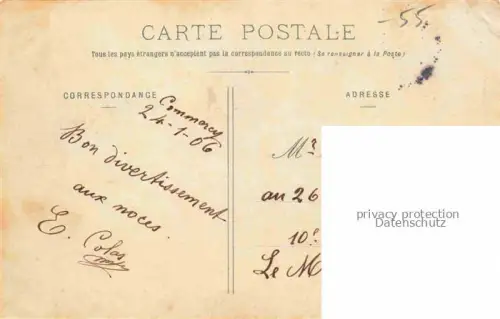 -55
CARTE POSTALE
Tous les pays étrangers n'acceptent pas la correspondance au recto (Se renseigner à la Poste)
CORRESPONDANCE
ADRESSE
Commercy
24-1-06
Bon divertissement
aux noces.
E. Colas
Mr
au 26
10e
Le M
privacy protection
Datenschutz